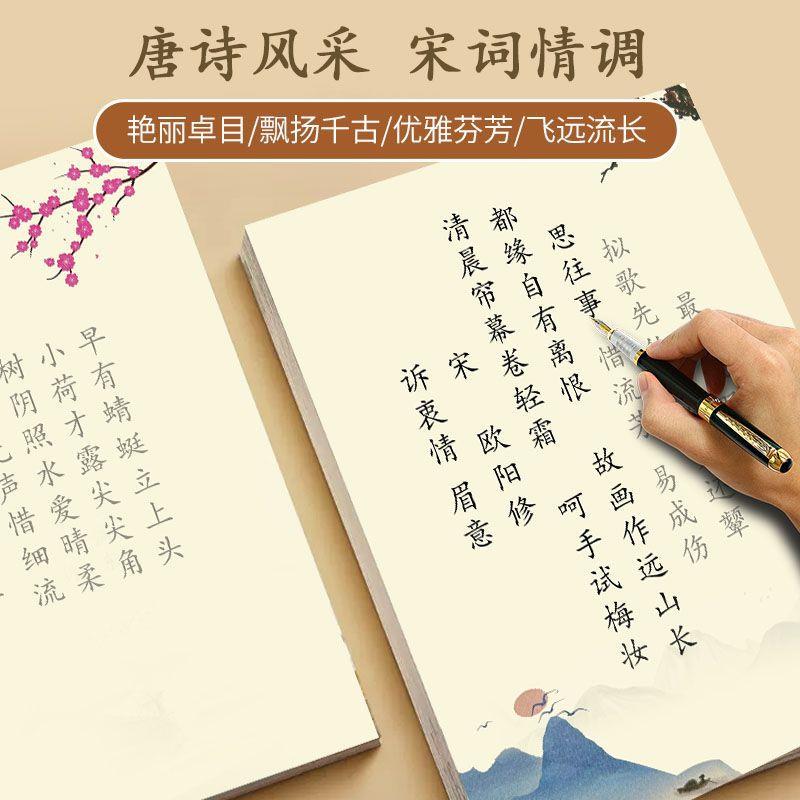 唐诗风采 宋词情调
艳丽卓目/飘扬千古/优雅芬芳/飞远流长
声惜细流
树阴照水爱晴柔
小荷才露尖尖角
早有蜻蜓立上头
诉衷情 眉意
宋 欧阳修
清晨帘幕卷轻霜 呵手试梅妆
都缘自有离恨 故画作远山长
思往事 惜流芳 易成伤
拟歌先 还颦
最